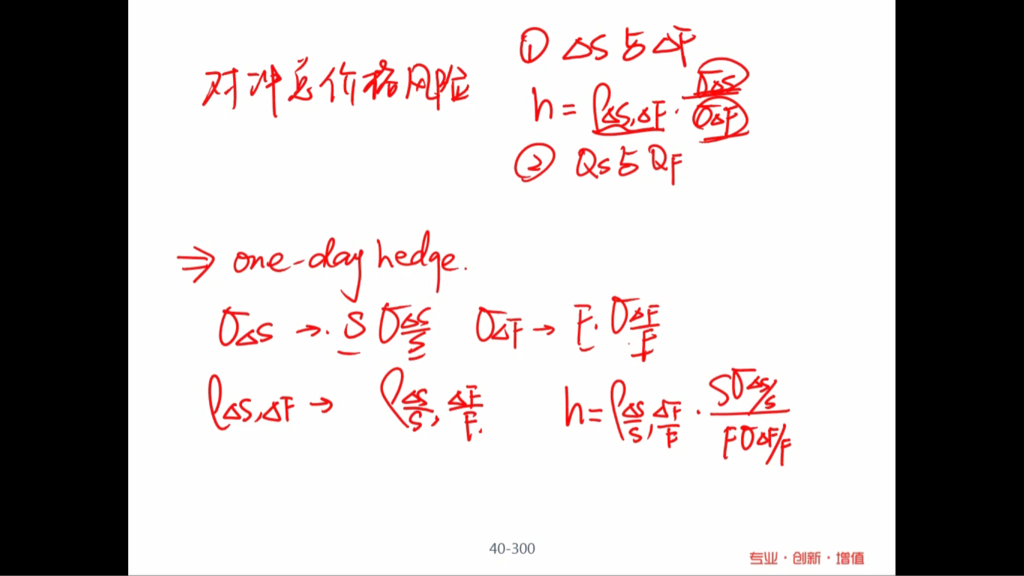 对冲总价格风险
① ΔS 与 ΔF
h = ρΔS,ΔF · σΔS/σΔF
② Qs 与 QF
⇒ one-day hedge.
σΔS → · S σΔS/S   σΔF → F · σΔF/F
ρΔS,ΔF → ρΔS/S, ΔF/F.   h = ρΔS/S, ΔF/F · SσΔS/S / FσΔF/F
40-300
专业·创新·增值